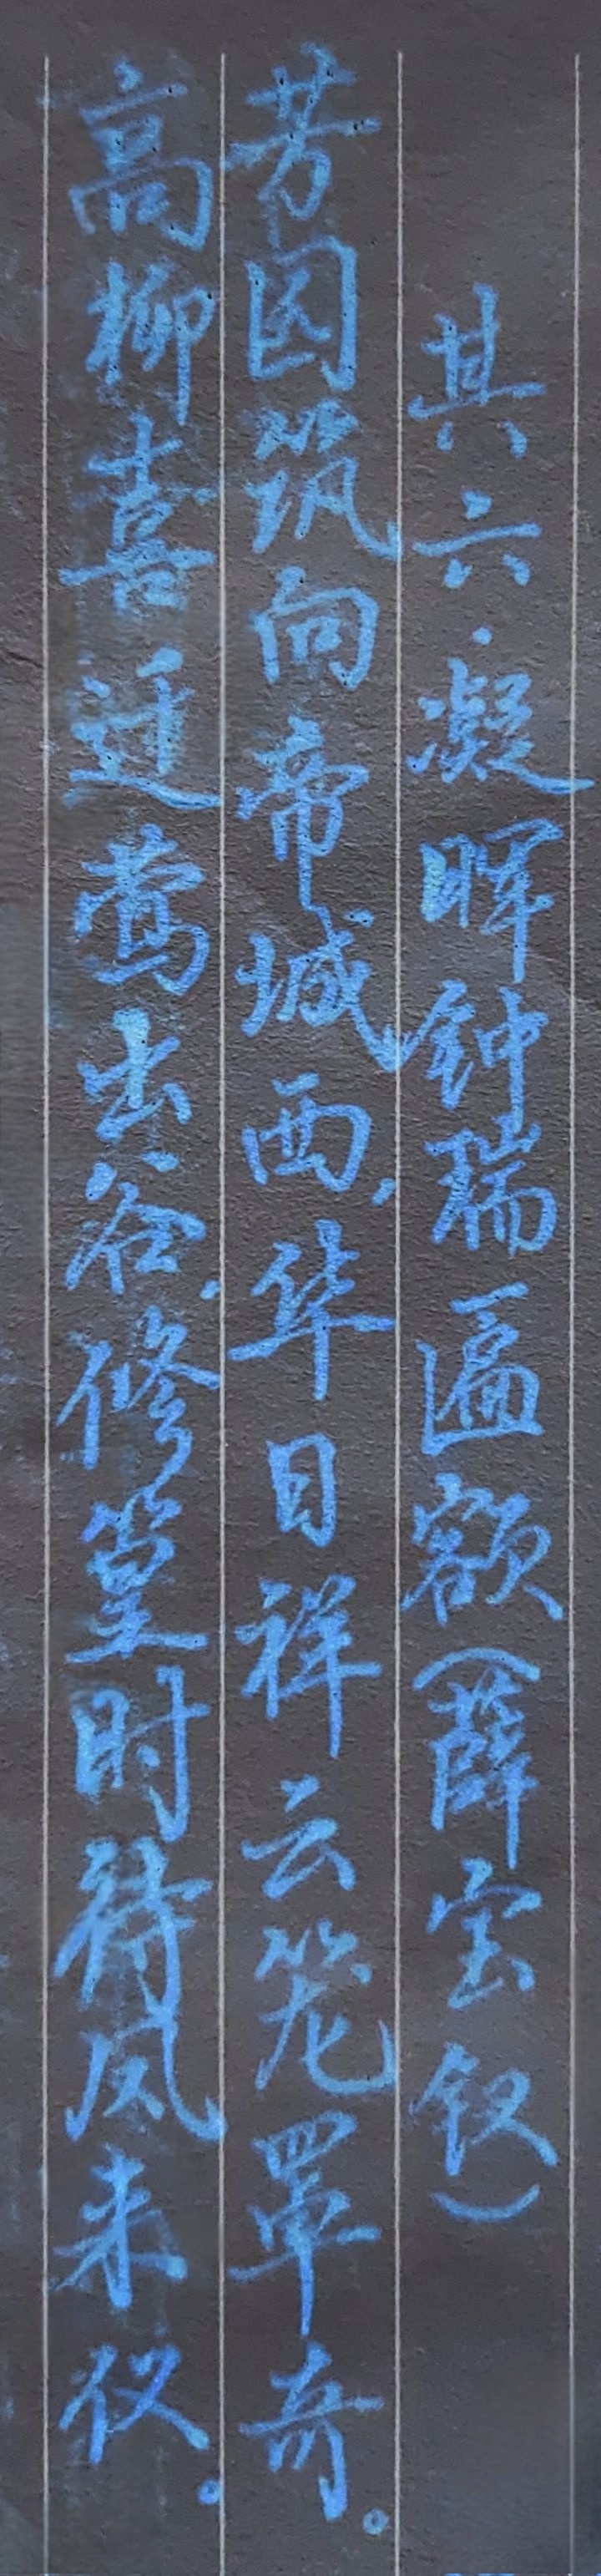 其六·凝晖钟瑞匾额（薛宝钗）
芳园筑向帝城西，华日祥云笼罩奇。
高柳喜迁莺出谷，修篁时待凤来仪。